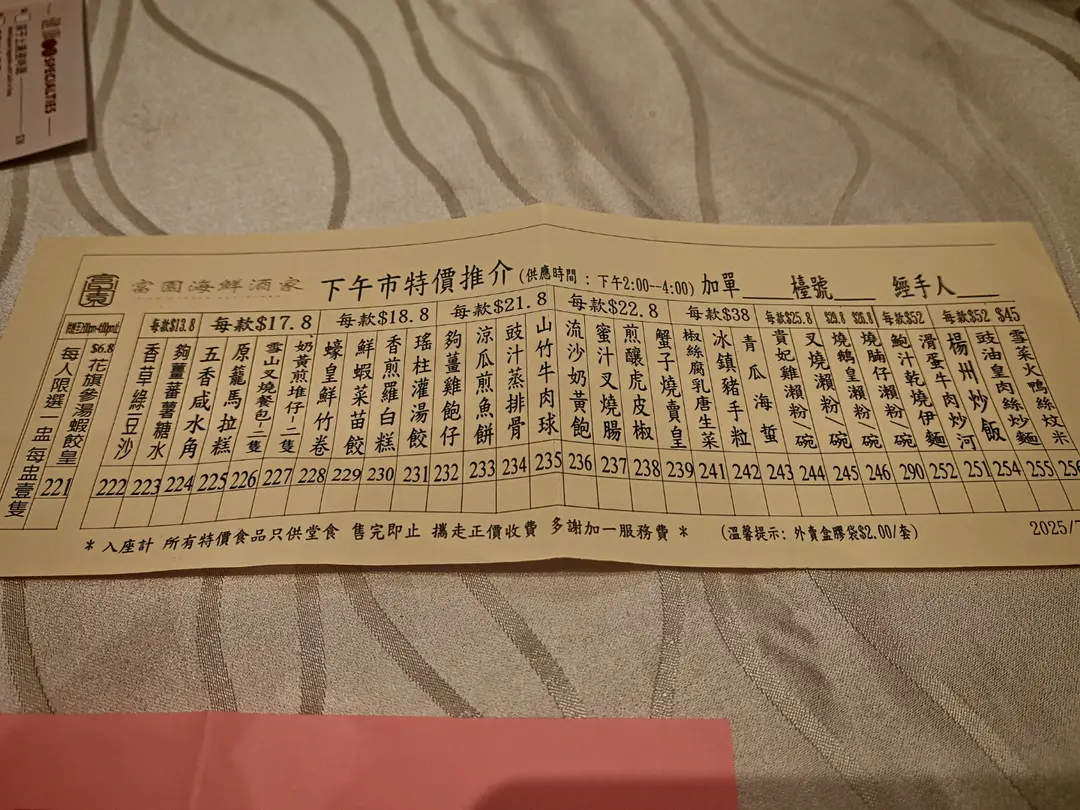 富園海鮮酒家 下午市特價推介(供應時間 : 下午2:00--4:00) 加單 檯號 經手人
每人限選一盅 每盅壹隻
$6.8
花旗參湯蝦餃皇
每款$13.8
香草綠豆沙
夠薑蕃薯糖水
每款$17.8
五香咸水角
原籠馬拉糕
雪山叉燒餐包-二隻
奶黃煎堆仔-二隻
每款$18.8
蠔皇鮮竹卷
鮮蝦菜苗餃
香煎蘿白糕
瑤柱灌湯餃
每款$21.8
夠薑雞飽仔
涼瓜煎魚餅
豉汁蒸排骨
山竹牛肉球
每款$22.8
流沙奶黃飽
蜜汁叉燒腸
煎釀虎皮椒
蟹子燒賣皇
每款$38
椒絲腐乳唐生菜
冰鎮豬手粒
青瓜海蜇
每款$25.8
貴妃雞瀨粉/碗
叉燒瀨粉/碗
燒鵝皇瀨粉/碗
燒腩仔瀨粉/碗
每款$52
鮑汁乾燒伊麵
滑蛋牛肉炒河
每款$52
楊州炒飯
豉油皇肉絲炒麵
$45
雪菜火鴨絲炆米
221 222 223 224 225 226 227 228 229 230 231 232 233 234 235 236 237 238 239 241 242 243 244 245 246 290 252 251 254 255 256
* 入座計 所有特價食品只供堂食 售完即止 攜走正價收費 多謝加一服務費 * (溫馨提示: 外賣盒膠袋$2.00/套) 2025/7
SPECIALTIES